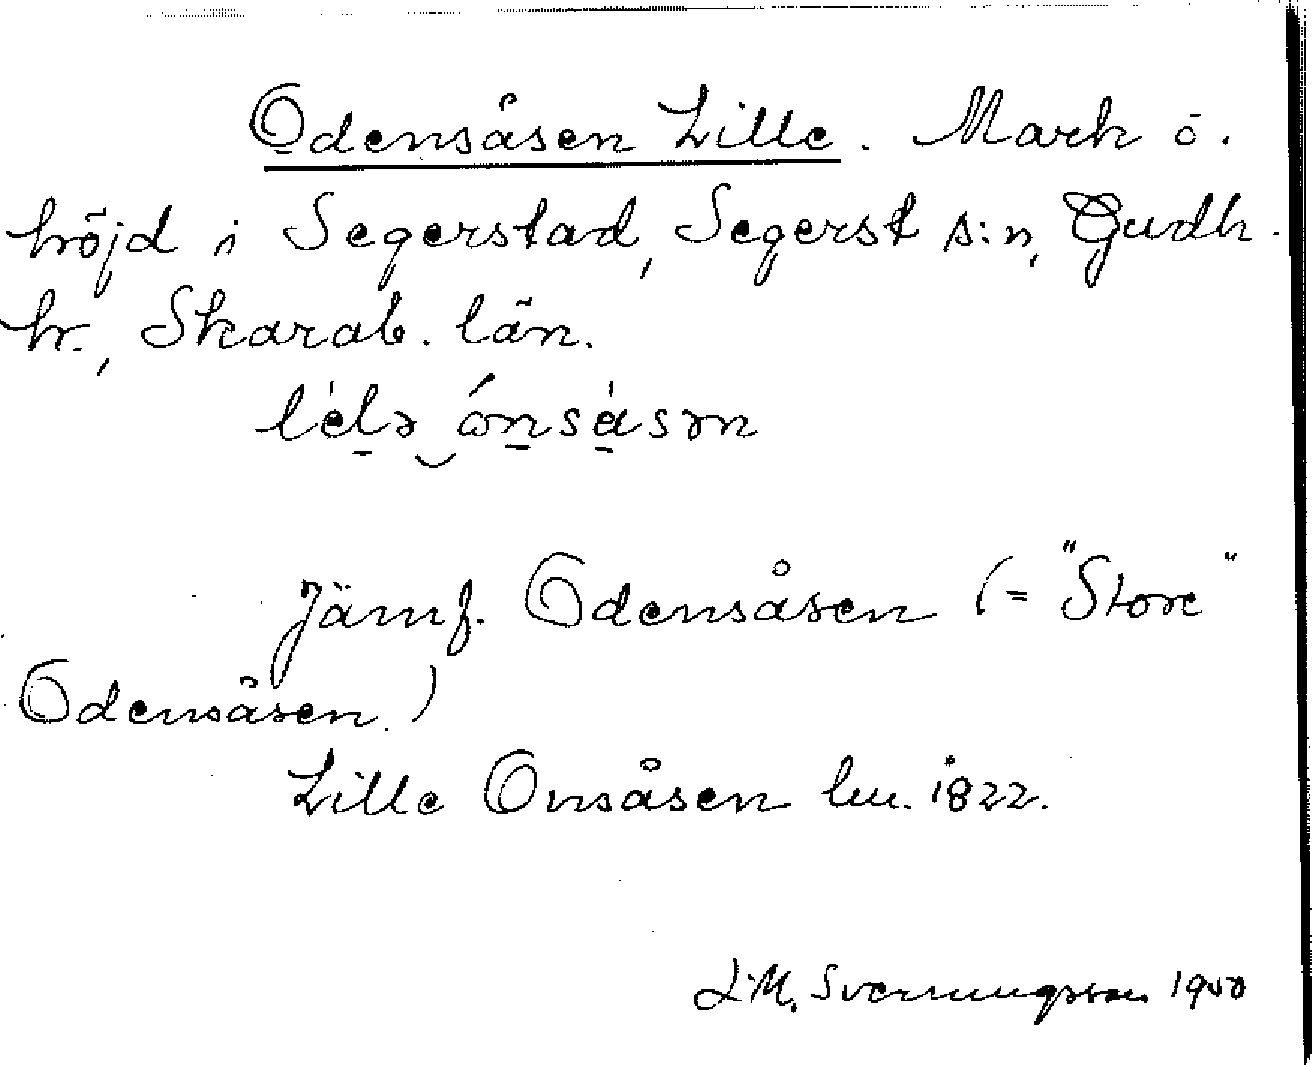 Odensåsen Lille. Mark o.
höjd i Segerstad, Segerst s:n, Gudh.
hr., Skarab. län.
lelə ónsåsən
Jämf. Odensåsen (= "Store"
Odensåsen.)
Lille Onsåsen lm. 1822.
L.M. Svenungsson 1950